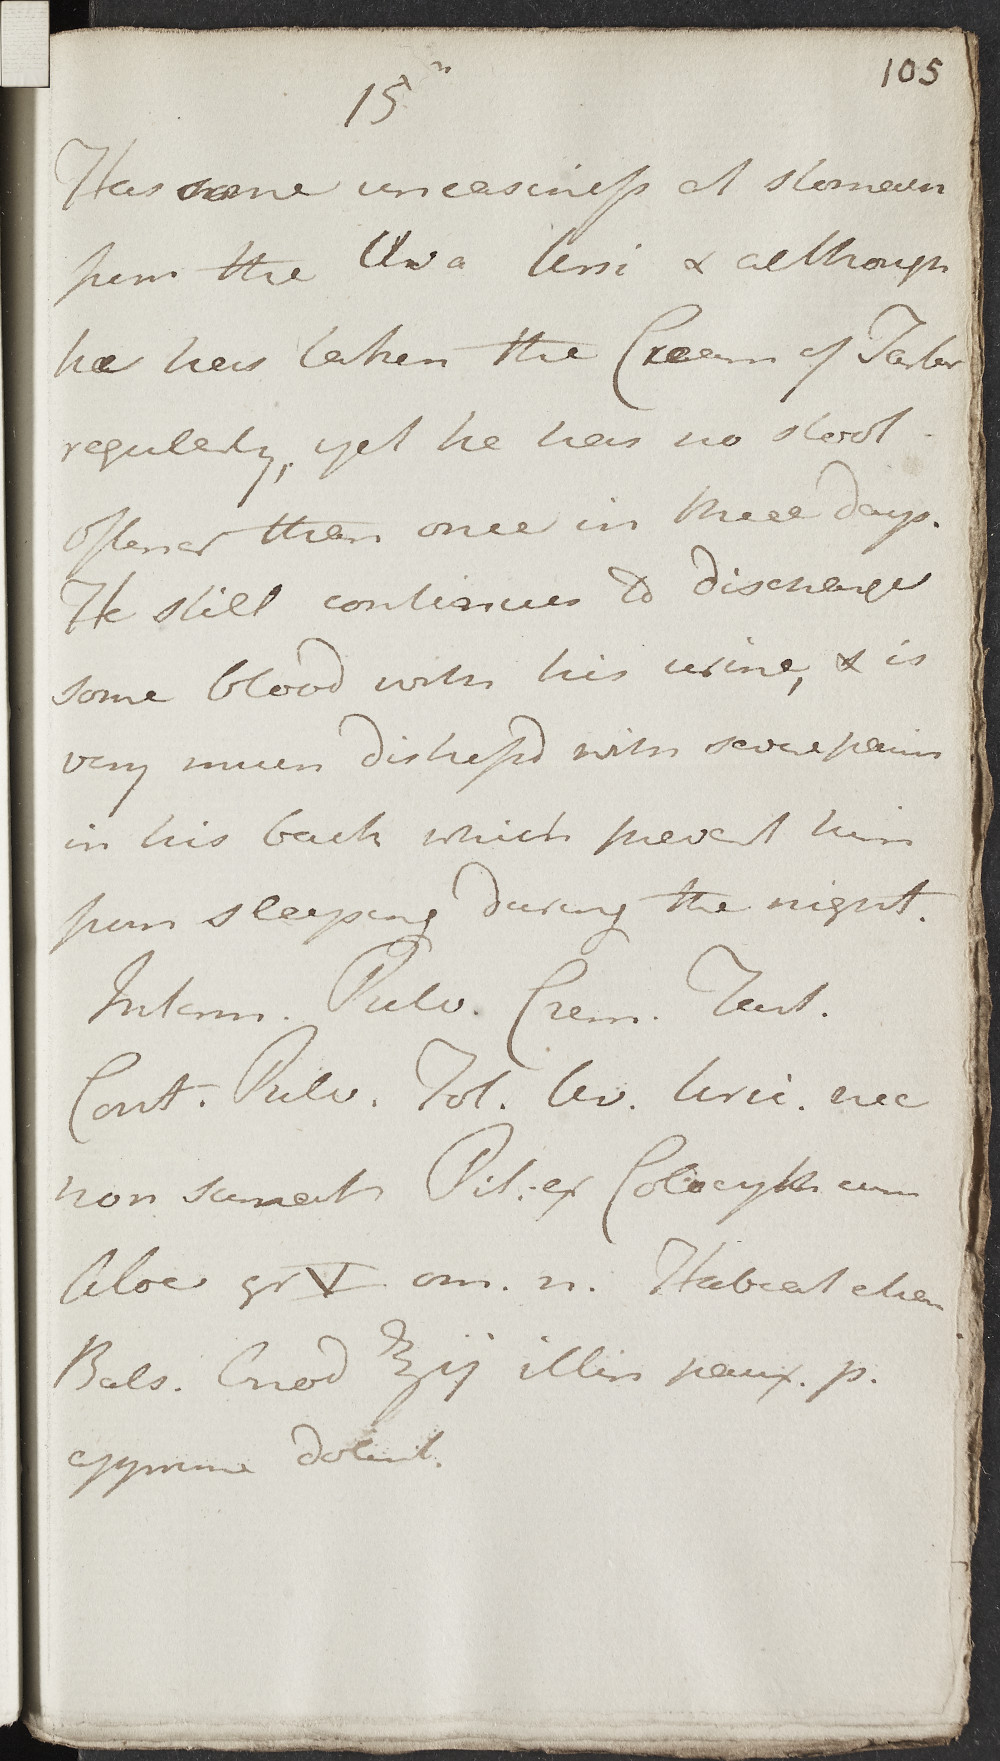 105
15"
Has some uneasiness at stomach
from the Uva Ursi & although
he has taken the Cream of Tartar
regularly, yet he has no stool
oftener then once in three days.
He still continues to discharge
some blood with his urine, & is
very much distress'd with severe pain
in his back which prevent him
from sleeping during the night.
Interm. Pulv. Crem. Tart.
Cont. Pulv. Fol. Uv. Ursi. nec
non sumat Pil. ex Colocynth cum
Aloe gr V om. n. Habeat etiam
Bals. Anod ℥ij illin paux. p.
dolent.